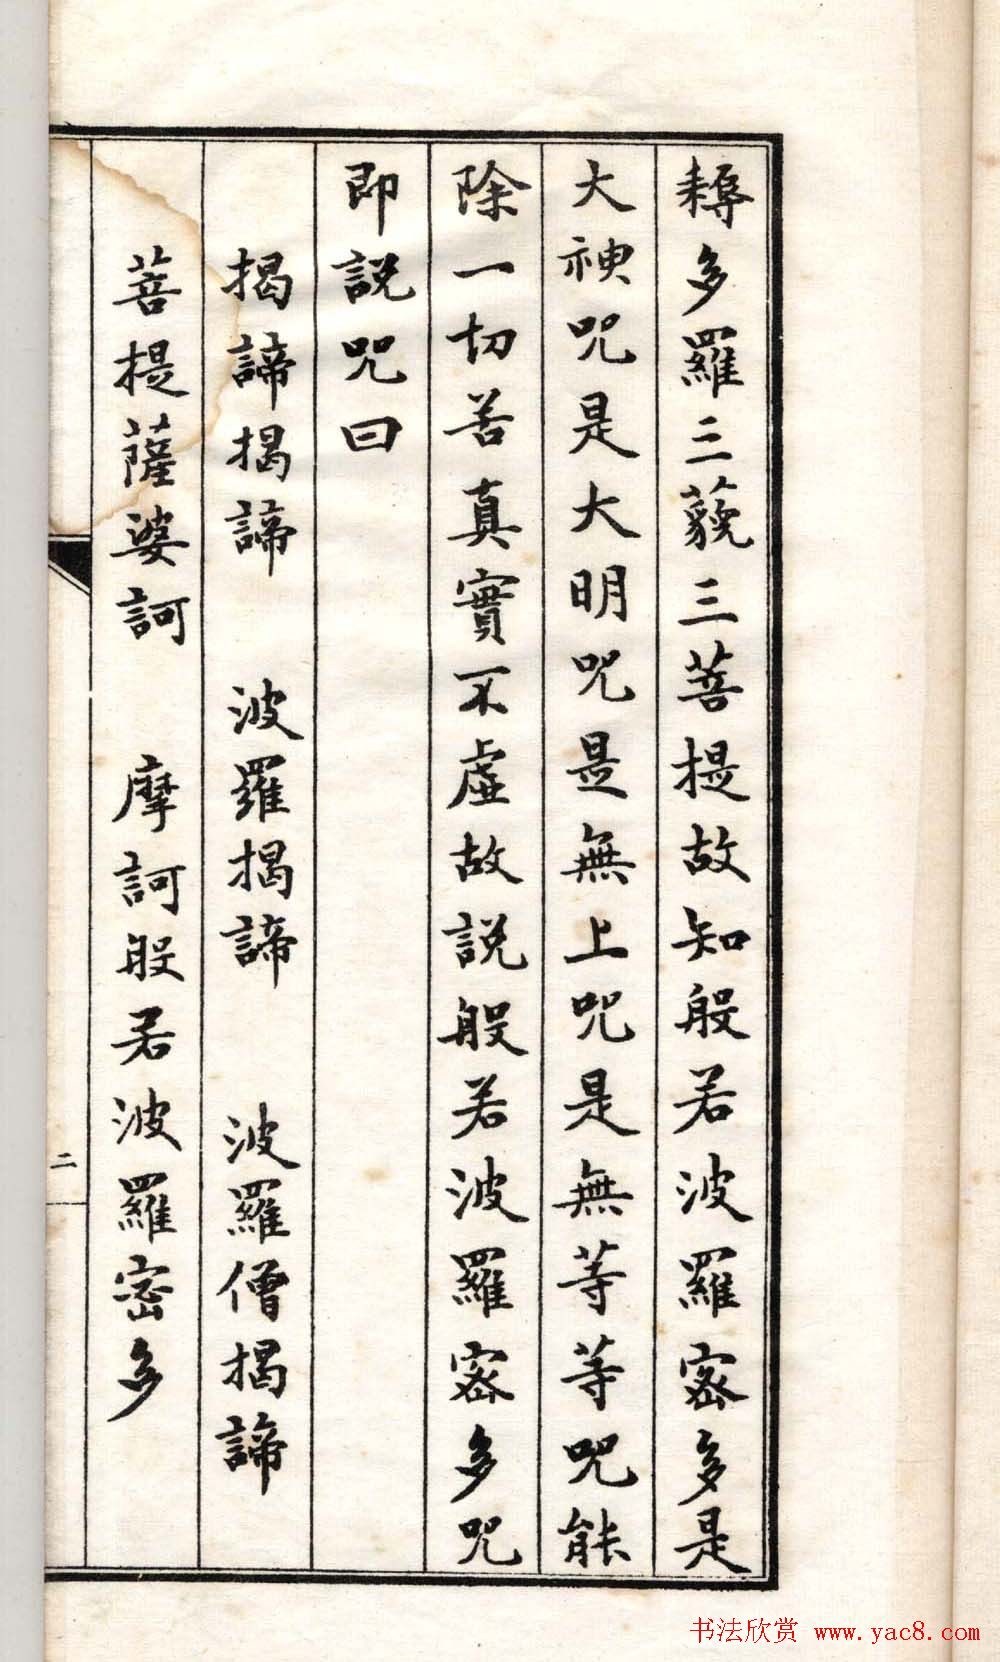 耨多羅三藐三菩提故知般若波羅密多是
大神咒是大明咒是無上咒是無等等咒能
除一切苦真實不虛故說般若波羅密多咒
即說咒曰
揭諦揭諦 波羅揭諦 波羅僧揭諦
菩提薩婆訶 摩訶般若波羅密多
二
书法欣赏 www.yac8.com